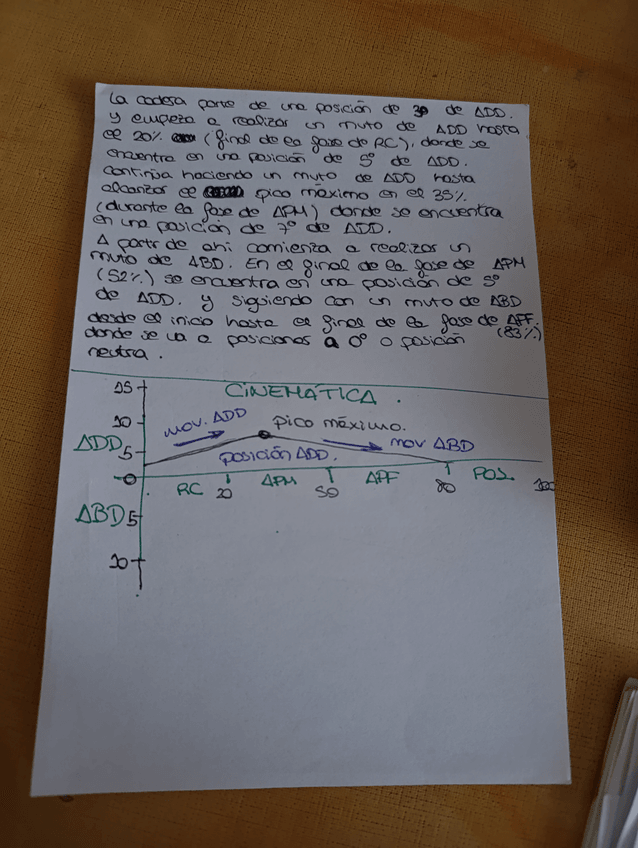 La cadera parte de una posición de 3º de ADD.
y empieza a realizar un mvto de ADD hasta
el 20% (final de la fase de RC), donde se
encuentra en una posición de 5º de ADD.
continúa haciendo un mvto de ADD hasta
alcanzar el pico máximo en el 35%
(durante la fase de APM) donde se encuentra
en una posición de 7º de ADD.
A partir de ahí comienza a realizar un
mvto de ABD. En el final de la fase de APM
(52%) se encuentra en una posición de 5º
de ADD. y siguiendo con un mvto de ABD
desde el inicio hasta el final de la fase de APF.
(83%)
donde se va a posicionar a 0º o posición
neutra.
CINEMÁTICA.
15
10
mov. ADD
pico máximo.
ADD
5
mov ABD
posición ADD.
0
RC
20
APM
50
APF
80
POS.
100
ABD
5
10